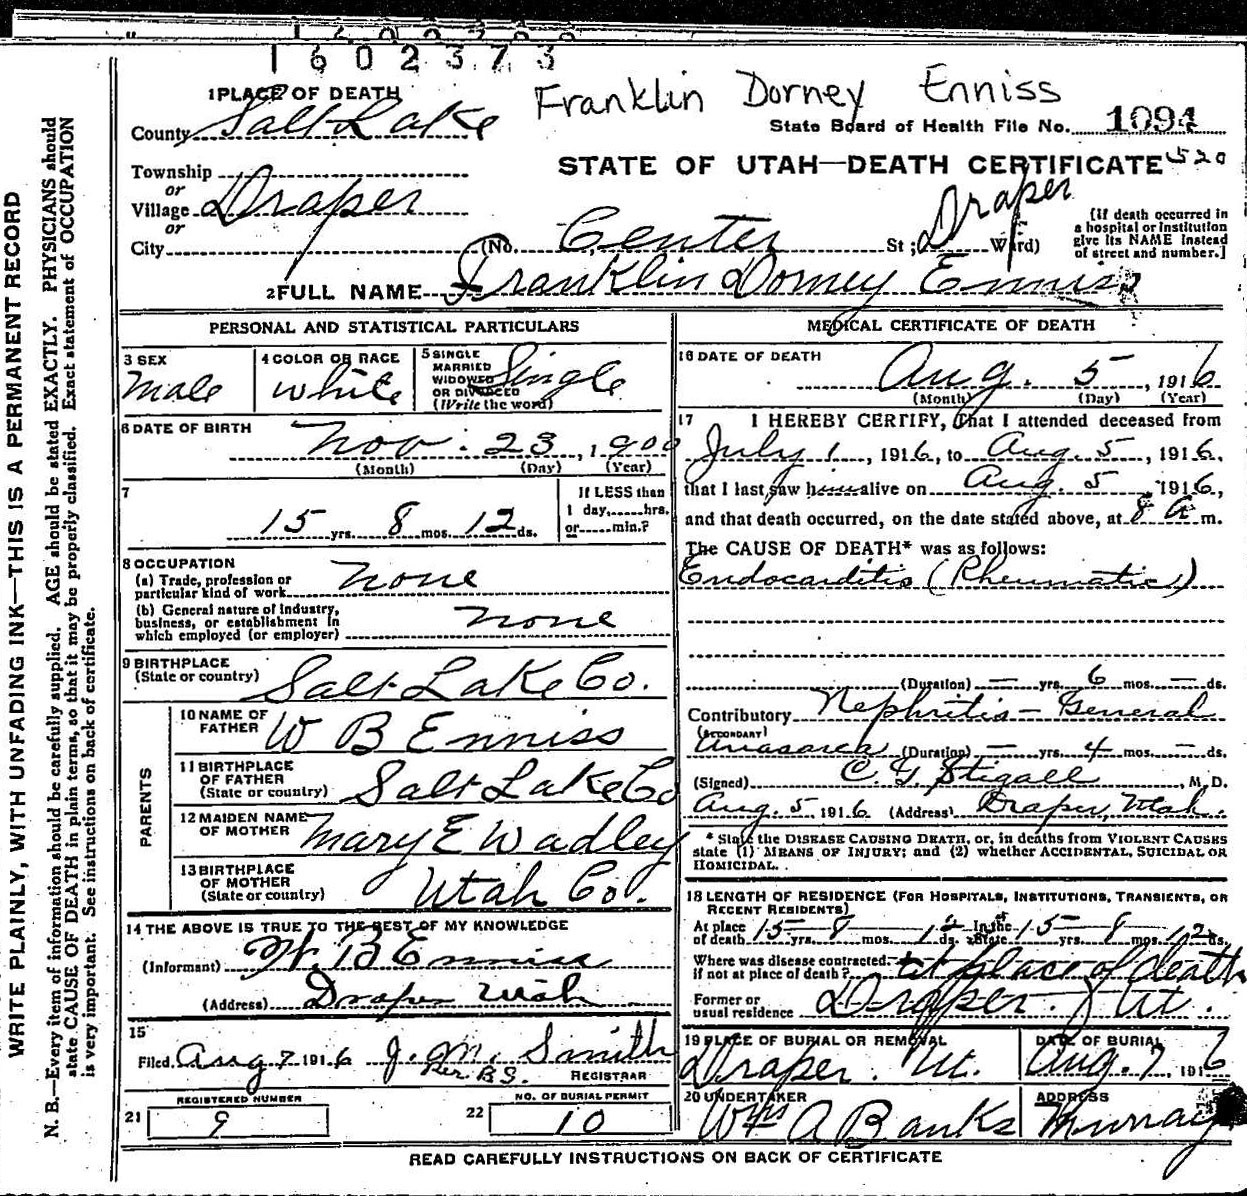 1602373
Franklin Dorney Enniss
1 PLACE OF DEATH
County Salt Lake
State Board of Health File No. 1094
STATE OF UTAH—DEATH CERTIFICATE 520
Township
or
Village Draper
or
City (No. Center St; Draper Ward)
[If death occurred in
a hospital or institution
give its NAME instead
of street and number.]
2 FULL NAME Franklin Dorney Enniss
PERSONAL AND STATISTICAL PARTICULARS
3 SEX
Male
4 COLOR OR RACE
White
5 SINGLE
MARRIED
WIDOWED
OR DIVORCED
(Write the word)
Single
6 DATE OF BIRTH
Nov. 23, 1900
(Month) (Day) (Year)
7
15 yrs. 8 mos. 12 ds.
If LESS than
1 day,.....hrs.
or.....min.?
8 OCCUPATION
(a) Trade, profession or
particular kind of work None
(b) General nature of industry,
business, or establishment in
which employed (or employer) None
9 BIRTHPLACE
(State or country) Salt Lake Co.
PARENTS
10 NAME OF
FATHER W B Enniss
11 BIRTHPLACE
OF FATHER
(State or country) Salt Lake Co
12 MAIDEN NAME
OF MOTHER Mary E Wadley
13 BIRTHPLACE
OF MOTHER
(State or country) Utah Co.
14 THE ABOVE IS TRUE TO THE BEST OF MY KNOWLEDGE
(Informant) W. B Enniss
(Address) Draper Utah
15
Filed Aug 7 1916 J. M. Smith
Per B.S. REGISTRAR
REGISTERED NUMBER
21 9
NO. OF BURIAL PERMIT
22 10
MEDICAL CERTIFICATE OF DEATH
16 DATE OF DEATH
Aug. 5, 1916
(Month) (Day) (Year)
17 I HEREBY CERTIFY, That I attended deceased from
July 1, 1916, to Aug. 5, 1916,
that I last saw him alive on Aug. 5, 1916,
and that death occurred, on the date stated above, at 8 A m.
The CAUSE OF DEATH* was as follows:
Endocarditis (Rheumatic)
(Duration) — yrs. 6 mos. — ds.
Contributory Nephritis - General
(SECONDARY)
Anasarca (Duration) — yrs. 4 mos. — ds.
(Signed) C. G. Stigall, M. D.
Aug. 5, 1916 (Address) Draper, Utah.
* State the DISEASE CAUSING DEATH, or, in deaths from VIOLENT CAUSES
state (1) MEANS OF INJURY; and (2) whether ACCIDENTAL, SUICIDAL OR
HOMICIDAL.
18 LENGTH OF RESIDENCE (FOR HOSPITALS, INSTITUTIONS, TRANSIENTS, OR
RECENT RESIDENTS)
At place
of death 15 yrs. 8 mos. 12 ds. In the State 15 yrs. 8 mos. 12 ds.
Where was disease contracted
if not at place of death? at place of death
Former or
usual residence Draper. Ut.
19 PLACE OF BURIAL OR REMOVAL
Draper. Ut.
DATE OF BURIAL
Aug. 7, 1916
20 UNDERTAKER
Wm A Banks
ADDRESS
Murray
READ CAREFULLY INSTRUCTIONS ON BACK OF CERTIFICATE
WRITE PLAINLY, WITH UNFADING INK—THIS IS A PERMANENT RECORD
N. B.—Every item of information should be carefully supplied. AGE should be stated EXACTLY. PHYSICIANS should
state CAUSE OF DEATH in plain terms, so that it may be properly classified. Exact statement of OCCUPATION
is very important. See instructions on back of certificate.